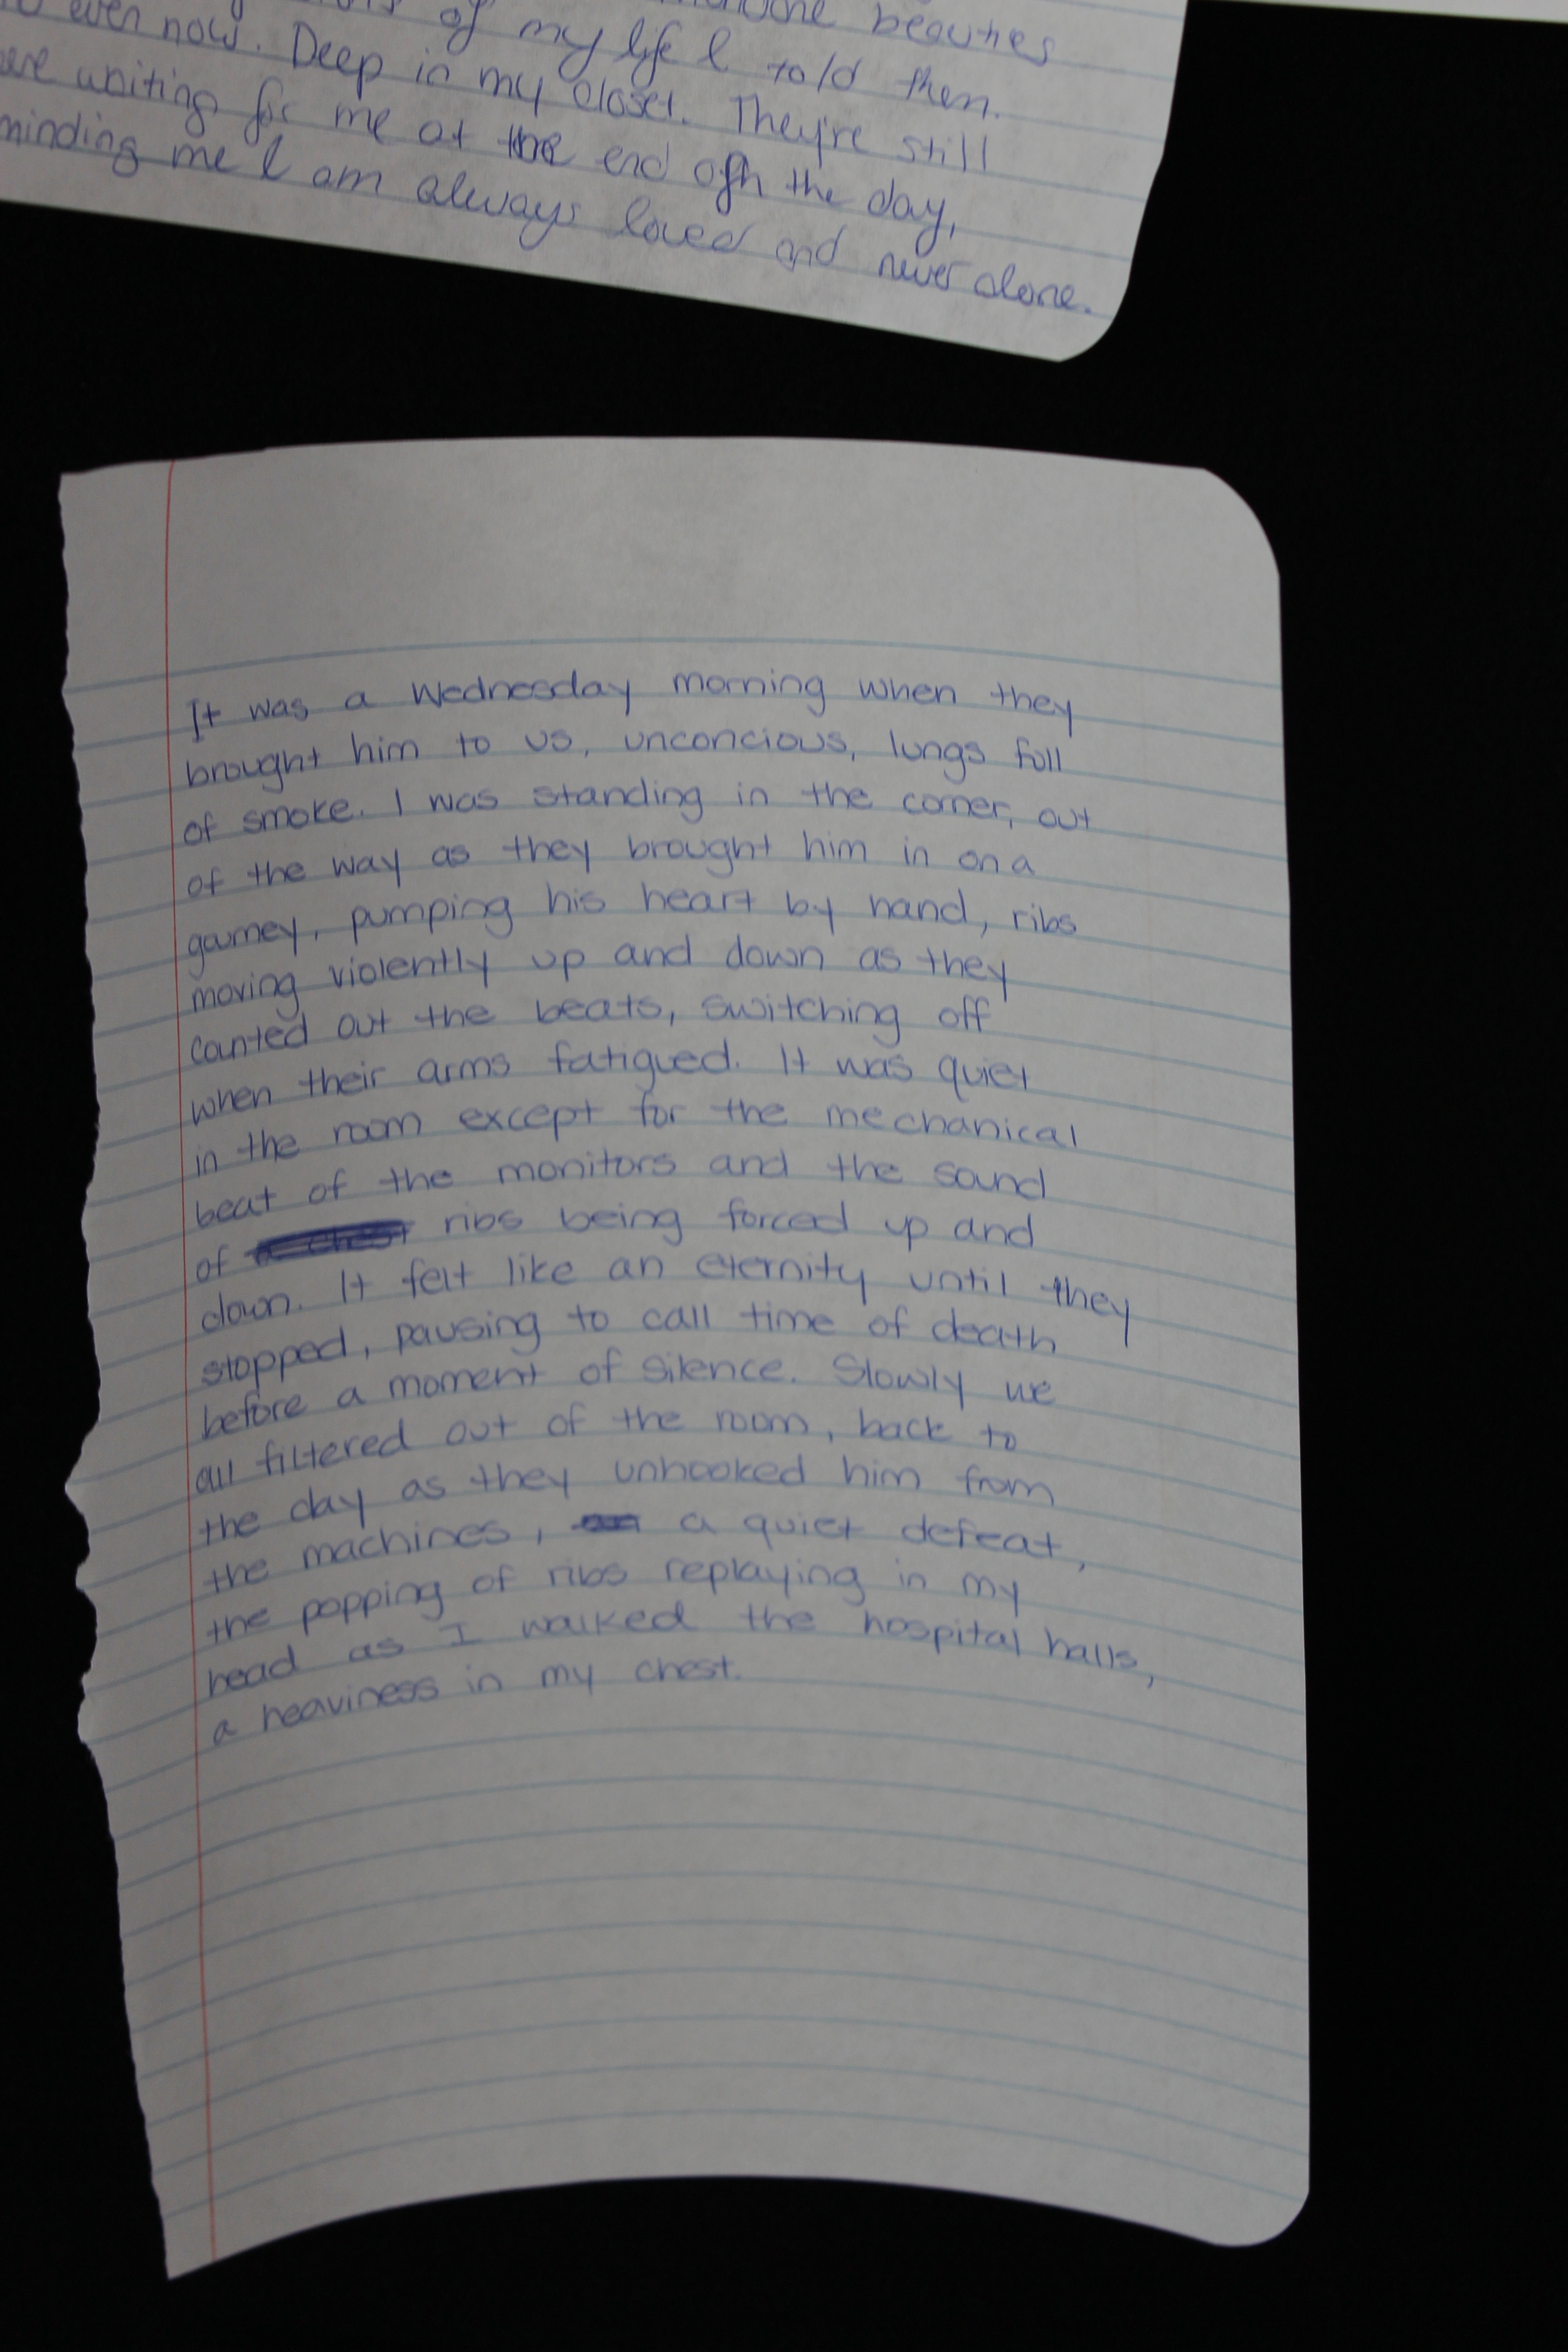 beauties
of my life I told them.
even now. Deep in my closet. They're still
waiting for me at the end ofn the day,
minding me I am always loved and never alone.
It was a Wednesday morning when they
brought him to us, unconcious, lungs full
of smoke. I was standing in the corner, out
of the way as they brought him in on a
gourney, pumping his heart by hand, ribs
moving violently up and down as they
counted out the beats, switching off
when their arms fatigued. It was quiet
in the room except for the mechanical
beat of the monitors and the sound
of ribs being forced up and
down. It felt like an eternity until they
stopped, pausing to call time of death
before a moment of silence. Slowly we
all filtered out of the room, back to
the day as they unhooked him from
the machines, a quiet defeat,
the popping of ribs replaying in my
head as I walked the hospital halls,
a heaviness in my chest.